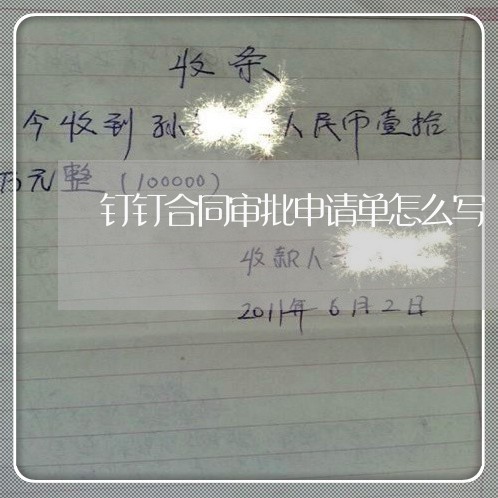 收条
今收到孙 人民币壹拾
万元整(100000)
钉钉合同审批申请单怎么写
收款人
2011年6月2日